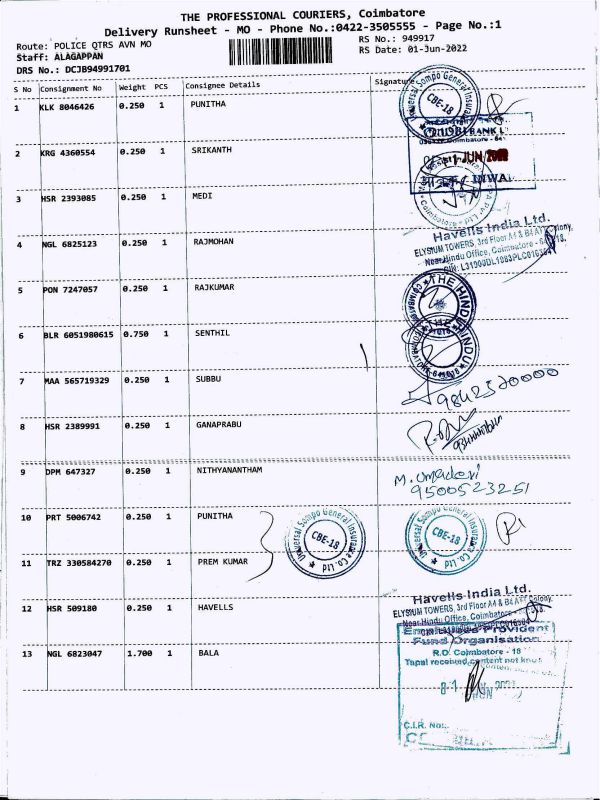 THE PROFESSIONAL COURIERS, Coimbatore
Delivery Runsheet - MO - Phone No.:0422-3505555 - Page No.:1
Route: POLICE QTRS AVN MO
RS No.: 949917
Staff: ALAGAPPAN
RS Date: 01-Jun-2022
DRS No.: DCJB94991701
S No Consignment No Weight PCS Consignee Details Signature
1 KLK 8046426 0.250 1 PUNITHA
Universal Sompo General Insurance
CBE-18
2 KRG 4360554 0.250 1 SRIKANTH
JUN
3 HSR 2393085 0.250 1 MEDI
4 NGL 6825123 0.250 1 RAJMOHAN
Havells India Ltd.
ELYSIUM TOWERS, 3rd Floor A4 & B4 Colony,
Near Hindu Office, Coimbatore -
5 PON 7247057 0.250 1 RAJKUMAR
THE HINDU
6 BLR 6051980615 0.750 1 SENTHIL
THE HINDU
7 MAA 565719329 0.250 1 SUBBU
9842570000
8 HSR 2389991 0.250 1 GANAPRABU
9 DPM 647327 0.250 1 NITHYANANTHAM
M. Umadevi
9500523251
10 PRT 5006742 0.250 1 PUNITHA
Universal Sompo General Insurance Co. Ltd
CBE-18
Universal Sompo General Insurance Co. Ltd
CBE-18
11 TRZ 330584270 0.250 1 PREM KUMAR
12 HSR 509180 0.250 1 HAVELLS
Havells India Ltd.
ELYSIUM TOWERS, 3rd Floor A4 & B4 Colony,
Near Hindu Office, Coimbatore
Employees Provident
Fund Organisation
13 NGL 6823047 1.700 1 BALA
R.O. Coimbatore - 18
Tapal received content not
C.I.R. No: